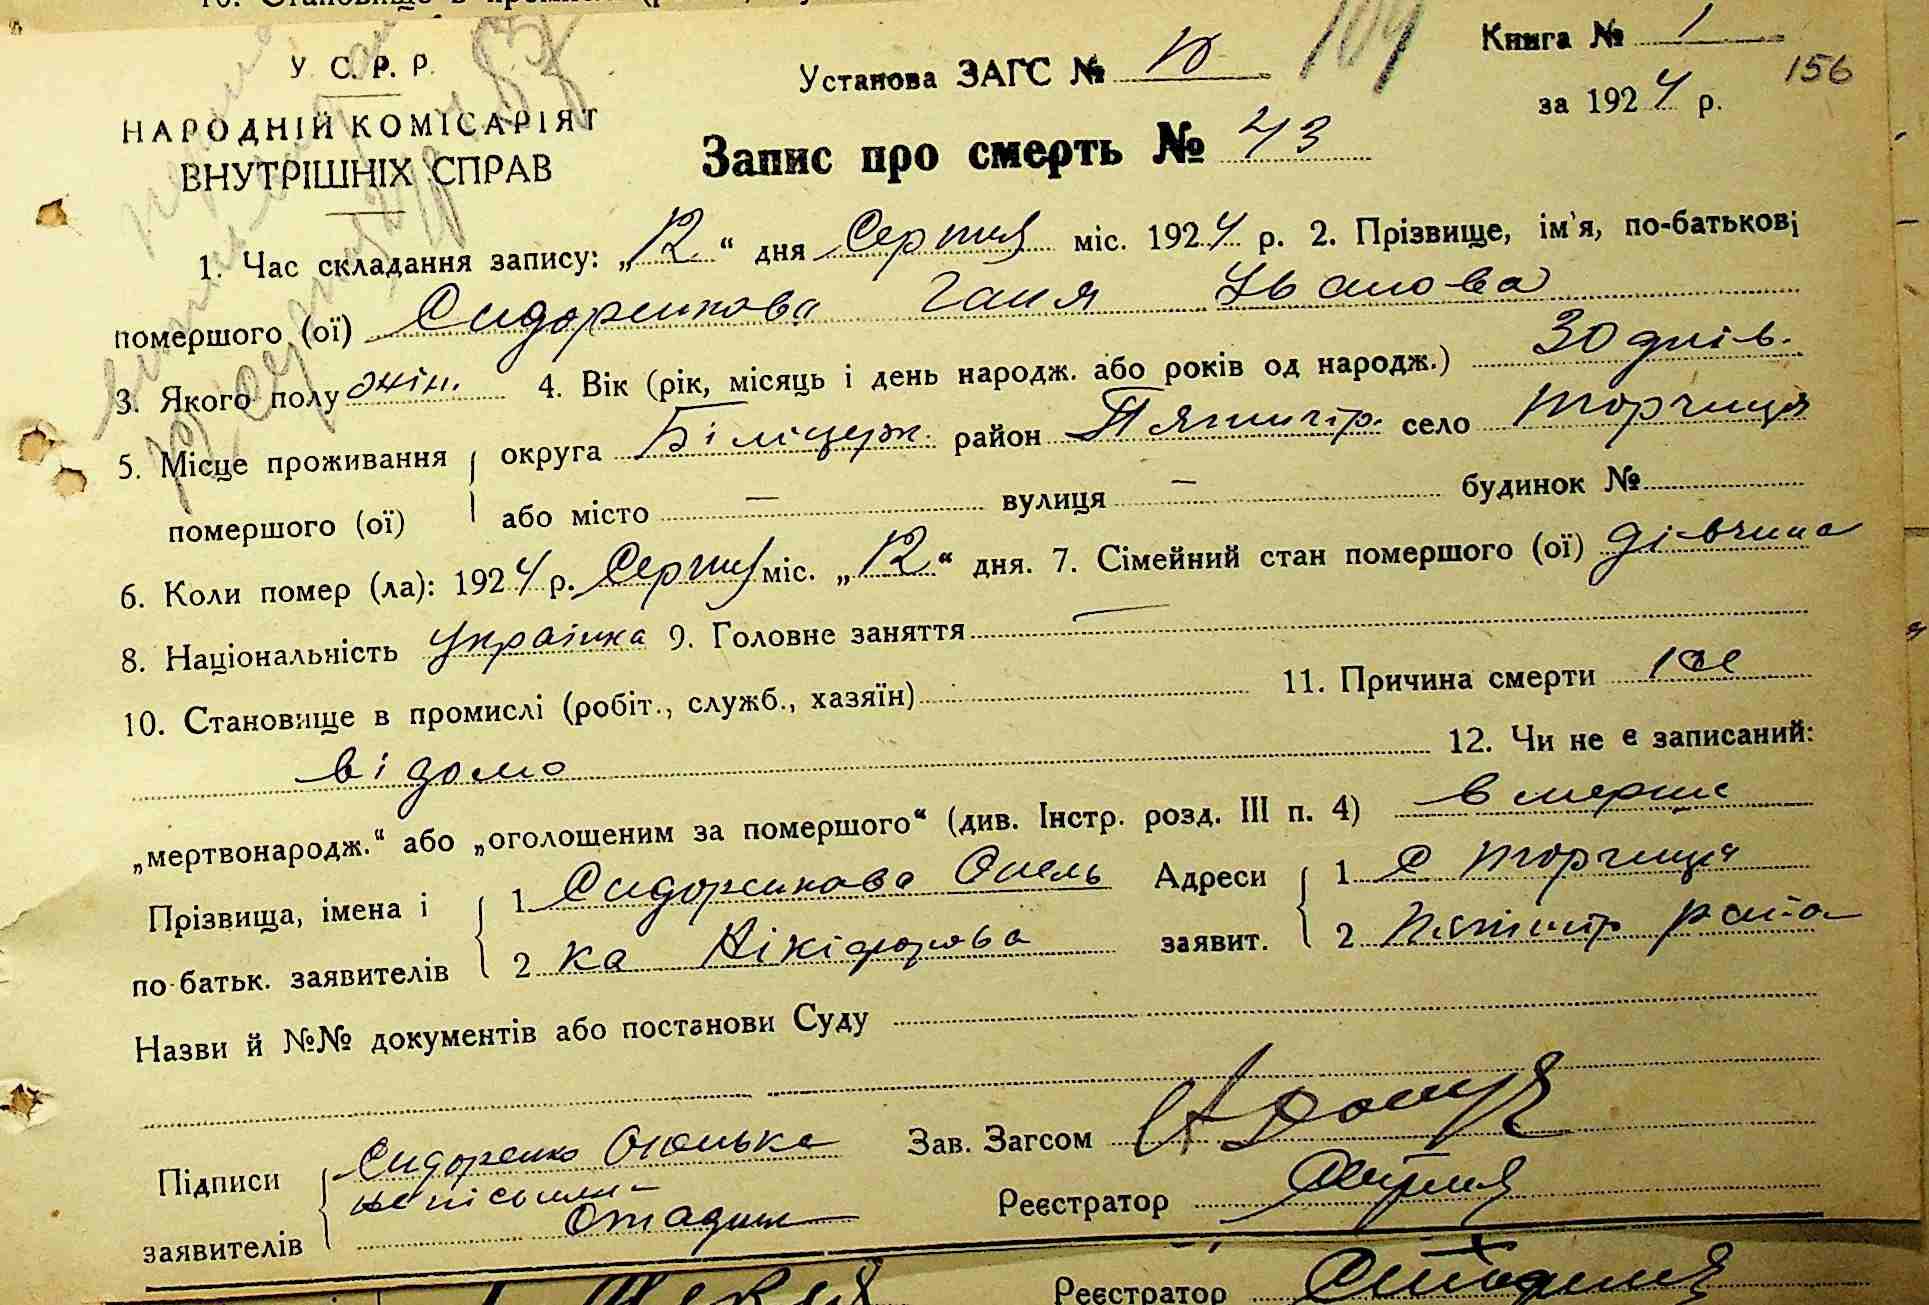 У. С. Р. Р.
НАРОДНІЙ КОМІСАРІЯТ
ВНУТРІШНІХ СПРАВ
Установа ЗАГС № 10
104
Книга № 1
за 1924 р.
156
Запис про смерть № 43
1. Час складання запису: „12“ дня Серпня міс. 1924 р. 2. Прізвище, ім'я, по-батькові
помершого (ої) Сидоренкова Ганя Іванова
3. Якого полу жін. 4. Вік (рік, місяць і день народж. або років од народж.) 30 днів.
5. Місце проживання округа Білоцерк. район Пятигір. село Торчиця
помершого (ої) або місто — вулиця — будинок №
6. Коли помер (ла): 1924 р. Серпня міс. „12“ дня. 7. Сімейний стан помершого (ої) дівчина
8. Національність українка 9. Головне заняття —
10. Становище в промислі (робіт., служб., хазяїн) 11. Причина смерти не
відомо 12. Чи не є записаний:
„мертвонародж.“ або „оголошеним за помершого“ (див. Інстр. розд. III п. 4)
Прізвища, імена і 1 Сидоренкова Омель Адреси 1 с Торчиця
по-батьк. заявителів 2 ка Нікіфорова заявит. 2 Пятигір района
Назви й №№ документів або постанови Суду
Підписи Сидоренко Зав. Загсом
неписьмен
заявителів Реєстратор
Реєстратор